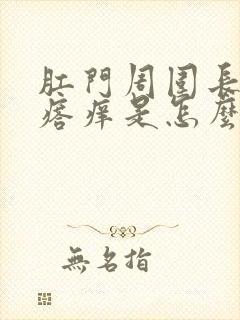 肛門周圍長
瘩痒是怎麼
無名指